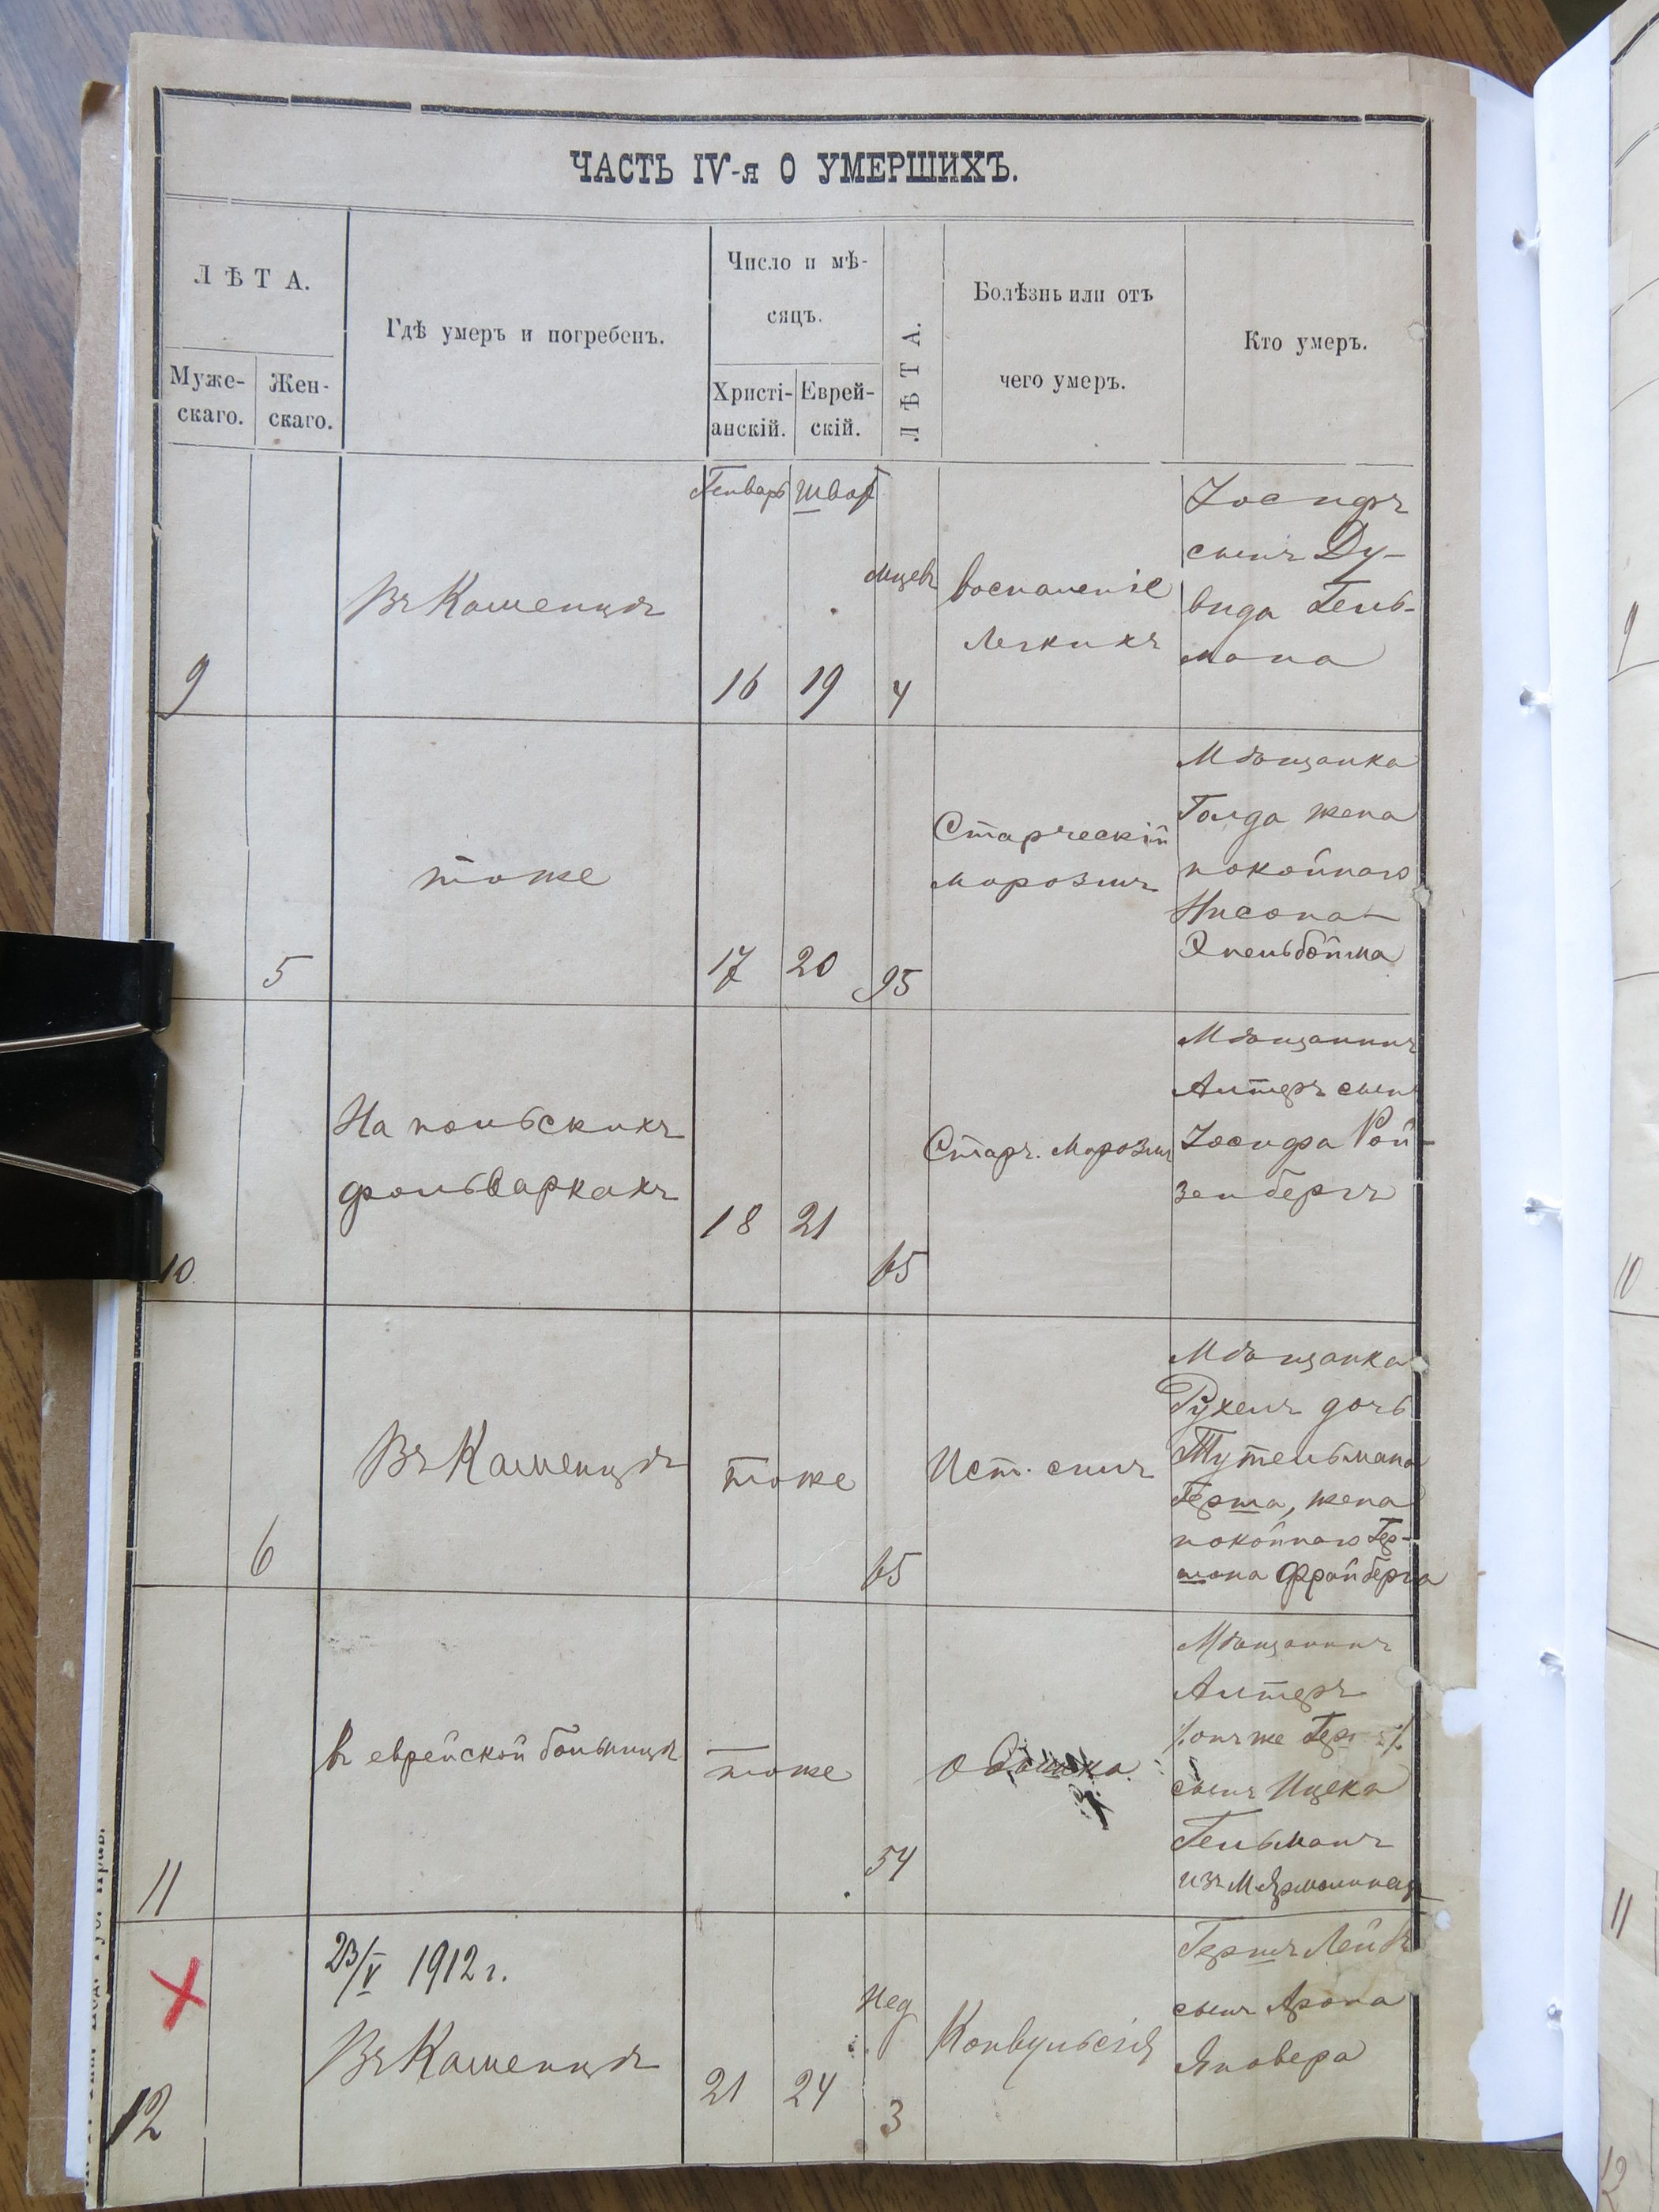 ЧАСТЬ IV-я О УМЕРШИХЪ.
ЛѢТА.
Муже-
скаго.
Жен-
скаго.
Гдѣ умеръ и погребенъ.
Число и мѣ-
сяцъ.
Христі-
анскій.
Еврей-
скій.
ЛѢТА.
Болѣзнь или отъ
чего умеръ.
Кто умеръ.
9
Въ Каменцѣ
Генварь
16
Шват
19
мцевъ
4
воспаленіе
легкихъ
Іосифъ
сынъ Ду-
вида Гель-
мана
5
тоже
17
20
95
Старческій
марозмъ
Мѣщанка
Голда жена
покойнаго
Нисона
Эпельбойма
10
На польскихъ
фольваркахъ
18
21
65
Старч. Марозмъ
Мѣщанинъ
Алтеръ сынъ
Іосифа Рой-
зенбергъ
6
Въ Каменцѣ
тоже
65
Ист. силъ
Мѣщанка
Рухель дочь
Тутельмана
Герша, жена
покойнаго Гер-
шона Фрайберга
11
въ еврейской больницѣ
тоже
54
Одышка
Мѣщанинъ
Алтеръ
онъ же
сынъ Ицека
Гельманъ
изъ М. Ярмолинецъ
12
23/V 1912 г.
Въ Каменцѣ
21
24
Нед
3
Конвульсія
Гершъ Лейбъ
сынъ Арона
Яновера
9
10
11
12